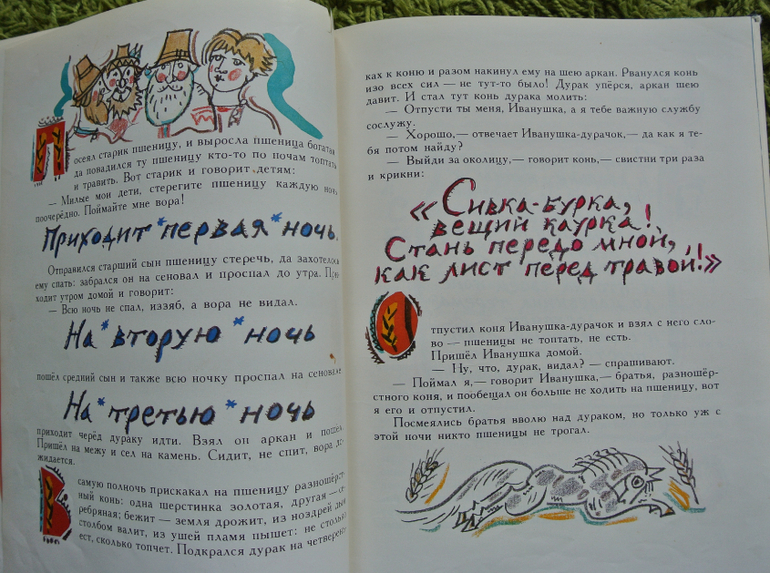 Посеял старик пшеницу, и выросла пшеница богатая
да повадился ту пшеницу кто-то по ночам топтать
и травить. Вот старик и говорит детям:
— Милые мои дети, стерегите пшеницу каждую ночь
поочерёдно. Поймайте мне вора!
Приходит*первая*ночь.
Отправился старший сын пшеницу стеречь, да захотелось
ему спать: забрался он на сеновал и проспал до утра. При-
ходит утром домой и говорит:
— Всю ночь не спал, иззяб, а вора не видал.
На*вторую*ночь
пошёл средний сын и также всю ночку проспал на сеновале.
На*третью*ночь
приходит черёд дураку идти. Взял он аркан и пошёл.
Пришёл на межу и сел на камень. Сидит, не спит, вора до-
жидается.
В самую полночь прискакал на пшеницу разношёрст-
ный конь: одна шерстинка золотая, другая — се-
ребряная; бежит — земля дрожит, из ноздрей дым
столбом валит, из ушей пламя пышет: не столько
ест, сколько топчет. Подкрался дурак на четверень-
ках к коню и разом накинул ему на шею аркан. Рванулся конь
изо всех сил — не тут-то было! Дурак упёрся, аркан шею
давит. И стал тут конь дурака молить:
— Отпусти ты меня, Иванушка, а я тебе важную службу
сослужу.
— Хорошо,— отвечает Иванушка-дурачок,— да как я те-
бя потом найду?
— Выйди за околицу,— говорит конь,— свистни три раза
и крикни:
«Сивка-бурка,
вещий каурка!
Стань передо мной,
как лист перед травой!»
Отпустил коня Иванушка-дурачок и взял с него сло-
во — пшеницы не топтать, не есть.
Пришёл Иванушка домой.
— Ну, что, дурак, видал? — спрашивают.
— Поймал я,— говорит Иванушка,— братья, разношёр-
стного коня, и пообещал он больше не ходить на пшеницу, вот
я его и отпустил.
Посмеялись братья вволю над дураком, но только уж с
этой ночи никто пшеницы не трогал.